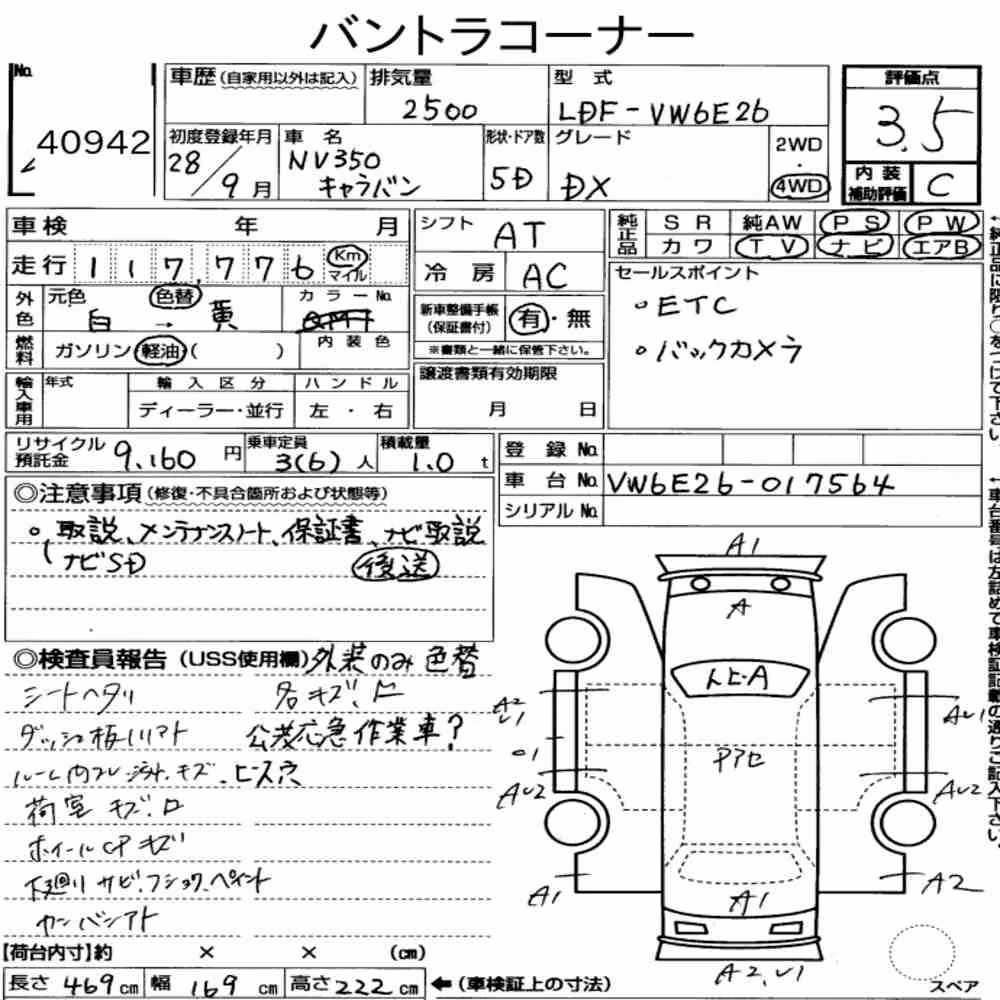 バントラコーナー
No.
40942
車歴(自家用以外は記入)
排気量
2500
型式
LDF-VW6E26
評価点
3.5
初度登録年月
28/9月
車名
NV350
キャラバン
形状・ドア数
5D
グレード
DX
2WD
・
4WD
内装
補助評価
C
車検 年 月
走行 117,776 Km マイル
シフト
AT
冷房 AC
純正品
SR 純AW PS PW
カワ TV ナビ エアB
外色
元色 色替
白 → 黄
カラーNo.
燃料
ガソリン 軽油( )
内装色
新車整備手帳
(保証書付)
有・無
※書類と一緒に保管下さい。
セールスポイント
・ETC
・バックカメラ
輸入車用
年式
輸入区分
ディーラー・並行
ハンドル
左・右
譲渡書類有効期限
月 日
リサイクル
預託金 9,160 円
乗車定員
3(6)人
積載量
1.0 t
登録No.
車台No. VW6E26-017564
シリアルNo.
◎注意事項(修復・不具合箇所および状態等)
○取説、メンテナンスノート、保証書、ナビ取説
ナビSD 後送
◎検査員報告(USS使用欄)外装のみ色替
シートヘタリ
各キズ、凹
公共応急作業車?
ルーム内コレ、汚れ、キズ、ビス穴
荷室キズ、凹
ホイールCPキズ
下廻りサビ、フショク、ペイント
カンバンアト
A1
A
トビ-A
アアセ
A2
U1
AU1
AU2
AU2
A1
A1
A2
A2,U1
【荷台内寸】約 × × (cm)
長さ 469cm 幅 169cm 高さ222cm ←(車検証上の寸法)
スペア
←純正品に限り○をつけて下さい。
←車台番号は左詰めで車検証記載の通りご記入下さい。